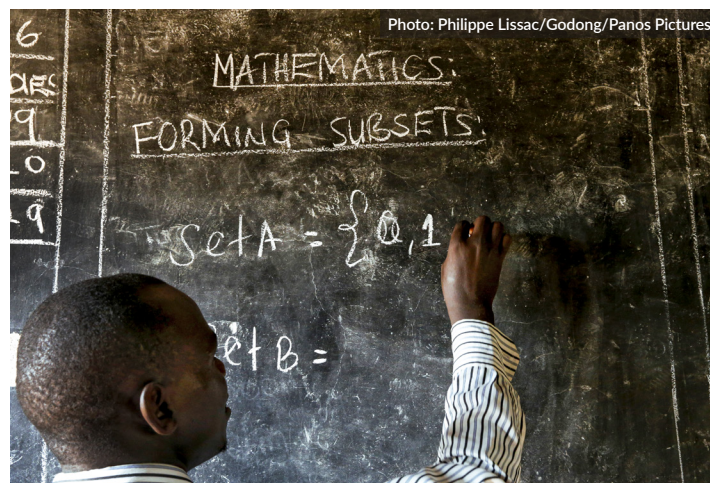 Photo: Philippe Lissac/Godong/Panos Pictures
6
9
0
19
MATHEMATICS:
FORMING SUBSETS:
Set A = {0, 1
Set B =